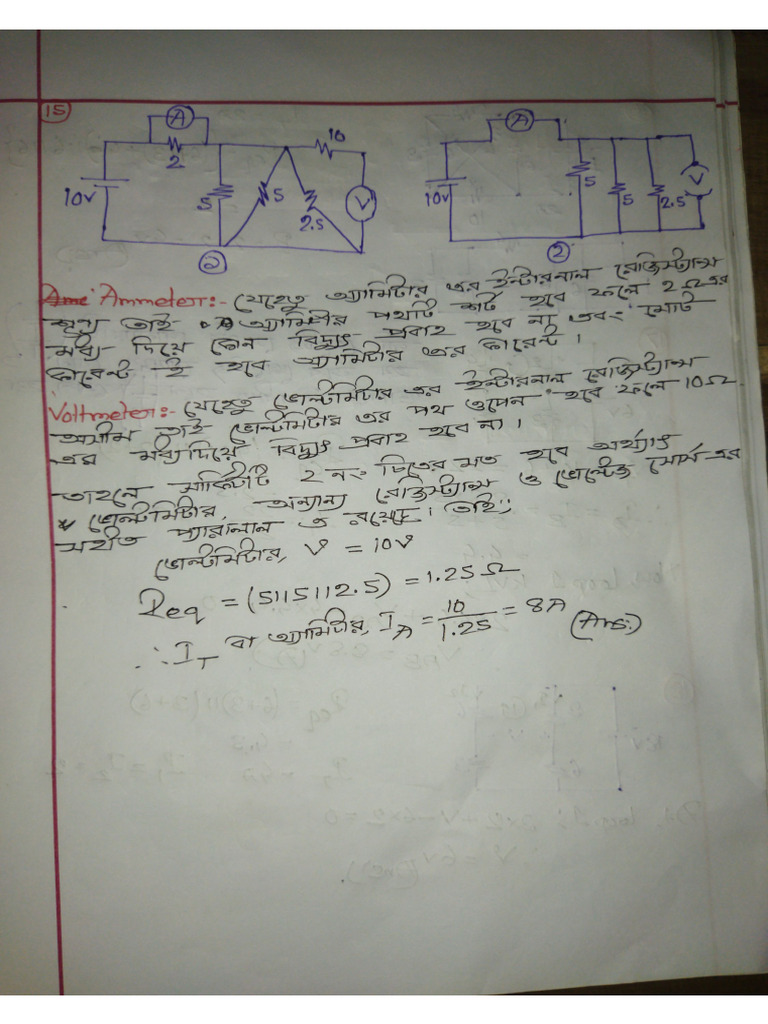 15
A
2
10V
5
5
2.5
10
V
2
A
10V
5
5
2.5
V
2
Ammeter:- যেহেতু অ্যামিটার এর ইন্টারনাল রেজিস্ট্যান্স
শূন্য তাই অ্যামিটার পথটি শর্ট হবে ফলে 2Ω এর
মধ্য দিয়ে কোন বিদ্যুৎ প্রবাহ হবে না এবং মোট
কারেন্ট ই হবে অ্যামিটার এর কারেন্ট।
Voltmeter:- যেহেতু ভোল্টমিটার এর ইন্টারনাল রেজিস্ট্যান্স
অসীম তাই ভোল্টমিটার এর পথ ওপেন হবে ফলে 10Ω
এর মধ্যদিয়ে বিদ্যুৎ প্রবাহ হবে না।
তাহলে সার্কিটটি 2 নং চিত্রের মত হবে অর্থ্যাৎ
ভোল্টমিটার, অন্যান্য রেজিস্ট্যান্স ও ভোল্টেজ সোর্স এর
সহিত প্যারালাল এ রয়েছে। তাই;
ভোল্টমিটার, V = 10V
Req = (5||5||2.5) = 1.25Ω
∴ I_T বা অ্যামিটার, I_A = 10/1.25 = 8A (Ans:)